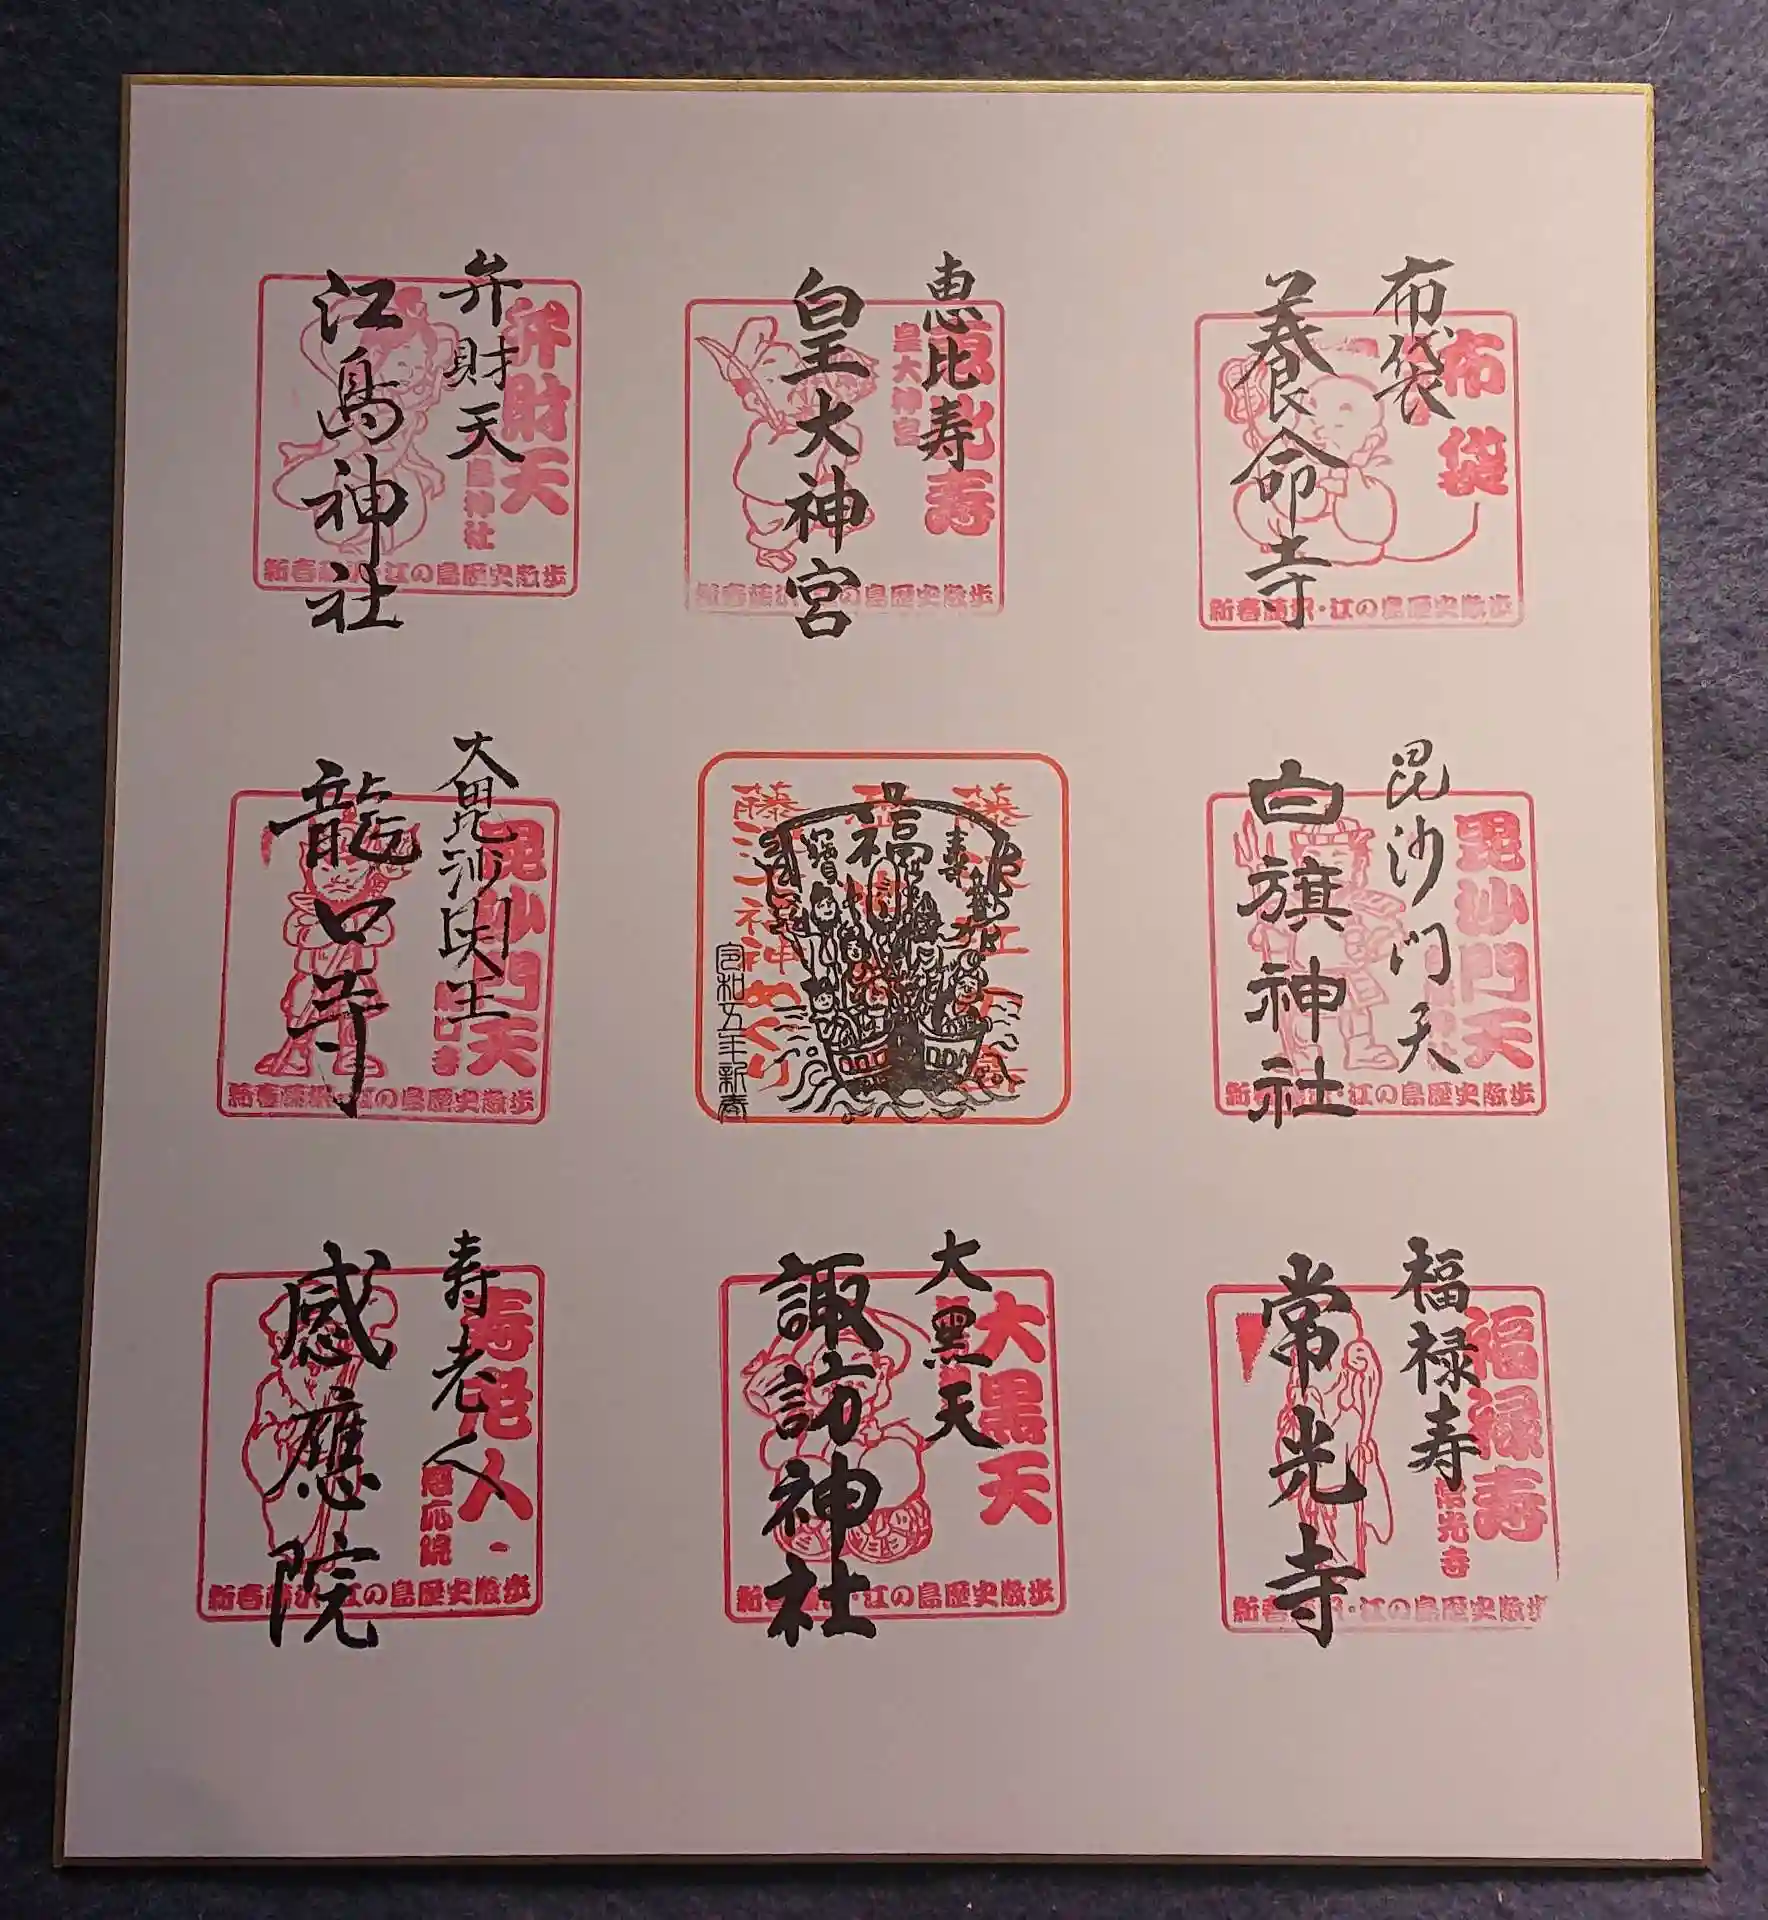 布袋
養命寺
布袋
新春藤沢・江の島歴史散歩
恵比寿
皇大神宮
恵比寿
皇大神宮
新春藤沢・江の島歴史散歩
弁財天
江島神社
弁財天
島神社
新春藤沢・江の島歴史散歩
毘沙門天
白旗神社
毘沙門天
新春藤沢・江の島歴史散歩
福
寿
寳
藤沢
令和五年新春
大毘沙門天王
龍口寺
毘沙門天
龍口寺
新春藤沢・江の島歴史散歩
福禄寿
常光寺
福禄寿
常光寺
新春藤沢・江の島歴史散歩
大黒天
諏訪神社
大黒天
新春藤沢・江の島歴史散歩
寿老人
感應院
寿老人
感応院
新春藤沢・江の島歴史散歩